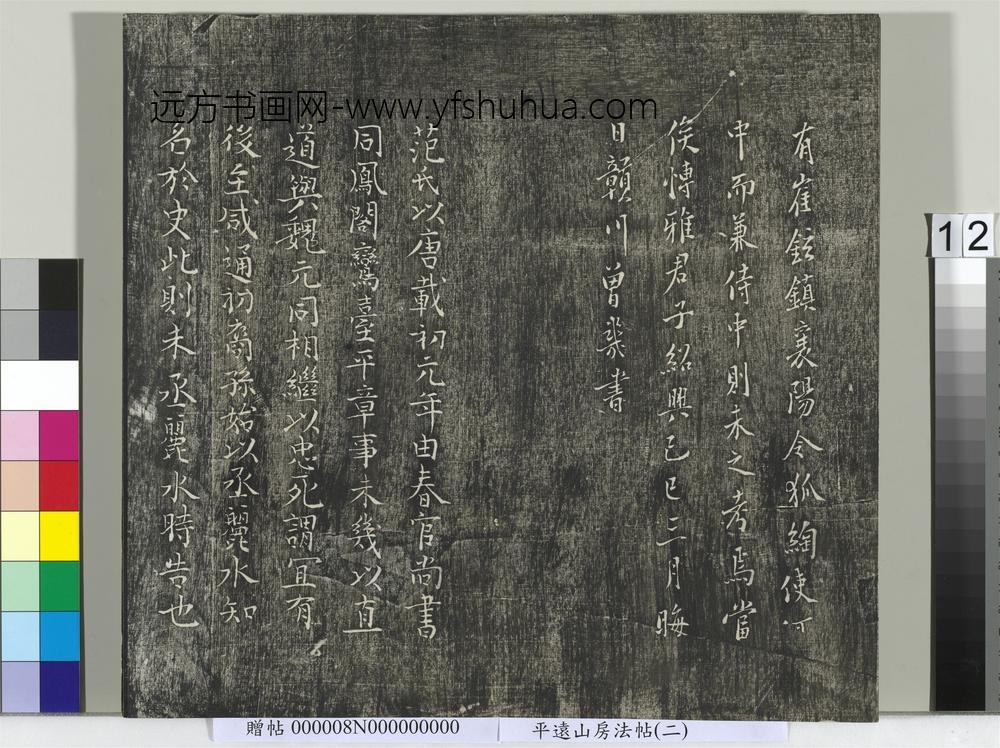 远方书画网-www.yfshuhua.com
有崔鉉鎮襄陽令狐綯使河
中而兼侍中則未之考焉當
俟博雅君子紹興己巳二月晦
日贛川曾幾書
范氏以唐載初元年由春官尚書
同鳳閣鸞臺平章事未幾以直
道與魏元同相繼以忠死謂宜有
後至咸通初裔孫始以丞麗水知
名於史此則未丞麗水時告也
12
贈帖 000008N000000000
平遠山房法帖(二)